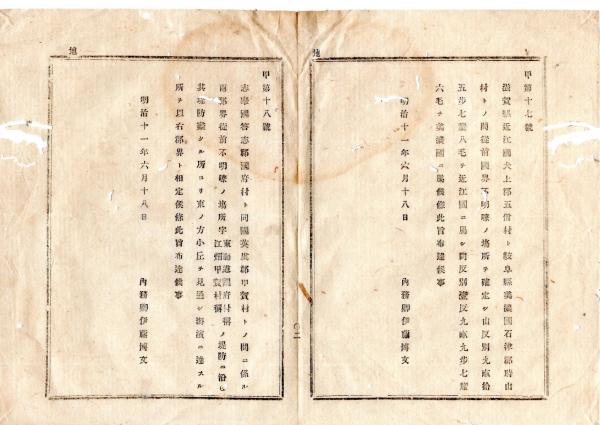 甲第十七號
滋賀縣近江國犬上郡五僧村ト岐阜縣美濃國石津郡時山
村トノ間從前國界不明瞭ノ場所ヲ確定シ山反別九畝拾
五步七釐八毛ヲ近江國ニ屬シ同反別壹反九畝九步七釐
六毛ヲ美濃國ニ屬候條此旨布達候事
明治十一年六月十八日
內務卿伊藤博文
甲第十八號
志摩國答志郡國府村ト同國英虞郡甲賀村トノ間ニ係ル
兩郡界從前不明瞭ノ場所字
東海道國府村稱
江畑甲賀村稱
ノ堤防ニ沿ヒ
其堤防盡クル所ヨリ東ノ方小丘ヲ見通シ海濱ニ達スル
所ヲ以右郡界ト相定候條此旨布達候事
明治十一年六月十八日
內務卿伊藤博文
地
地
〇二